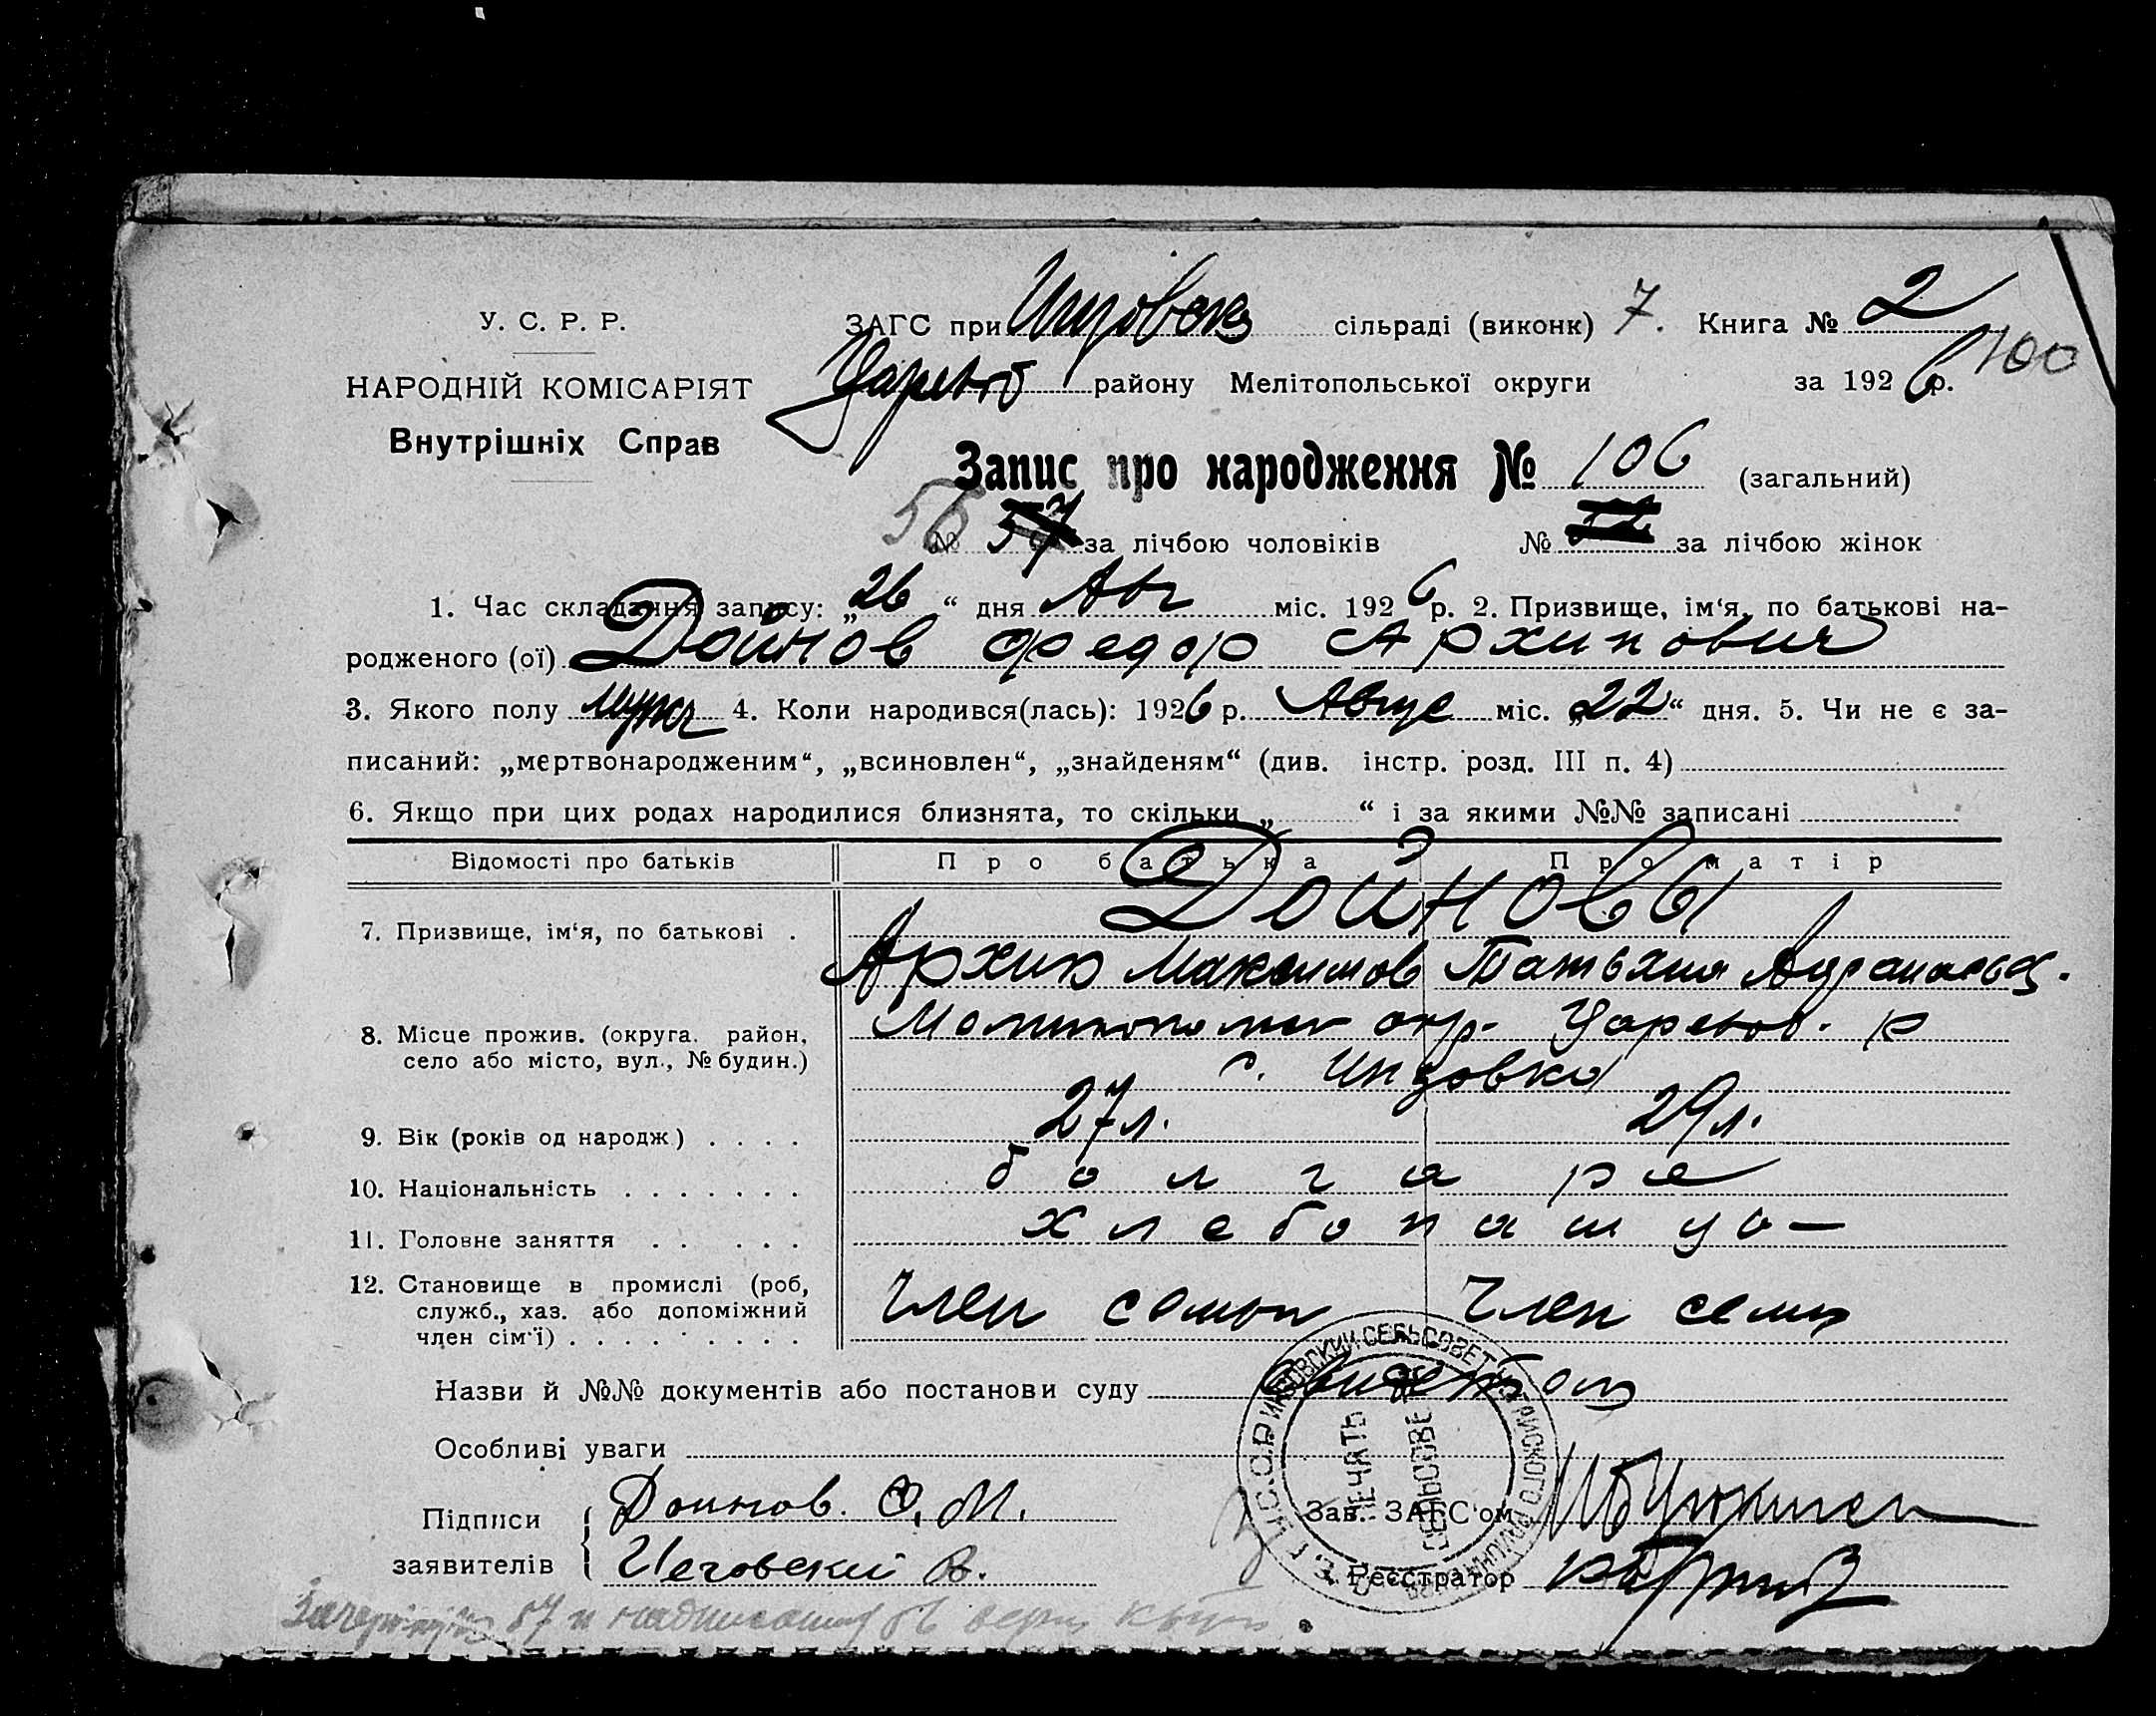 У. С. Р. Р.
НАРОДНІЙ КОМІСАРІЯТ
Внутрішніх Справ
ЗАГС при Инзовск сільраді (виконк) 7. Книга № 2
Царев району Мелітопольської округи за 1926 р. 100
Запис про народження № 106 (загальний)
56 № 57 за лічбою чоловіків № за лічбою жінок
1. Час складання запису: „26“ дня Авг міс. 1926 р. 2. Призвище, ім‘я, по батькові на-
родженого (ої) Дойнов Федор Архипович
3. Якого полу муж 4. Коли народився(лась): 1926 р. Авгус міс. „22“ дня. 5. Чи не є за-
писаний: „мертвонародженим“, „всиновлен“, „знайденям“ (див. інстр. розд. III п. 4)
6. Якщо при цих родах народилися близнята, то скільки „ “ і за якими №№ записані
Відомості про батьків Про батька Про матір
Дойновы
7. Призвище, ім‘я, по батькові . Архип Максимов Татьяна
8. Місце прожив. (округа, район, село або місто, вул., № будин.) окр. Царевов. р
с. Инзовка
9. Вік (років од народж) . . . . 27 л. 29 л.
10. Національність . . . . . . . болгаре
11. Головне заняття . . . . . хлебопаш
12. Становище в промислі (роб, служб., хаз. або допоміжний член сім‘ї) . . . . . . . . . член семьи член семьи
Назви й №№ документів або постанови суду
Особливі уваги
Підписи заявителів { Доинов. М.
Чеговский В.
Зав. ЗАГС‘ом
Реєстратор
У.С.С.Р. ИНЗОВСКИЙ СЕЛЬСОВЕТ
ПЕЧАТЬ
57 и 56